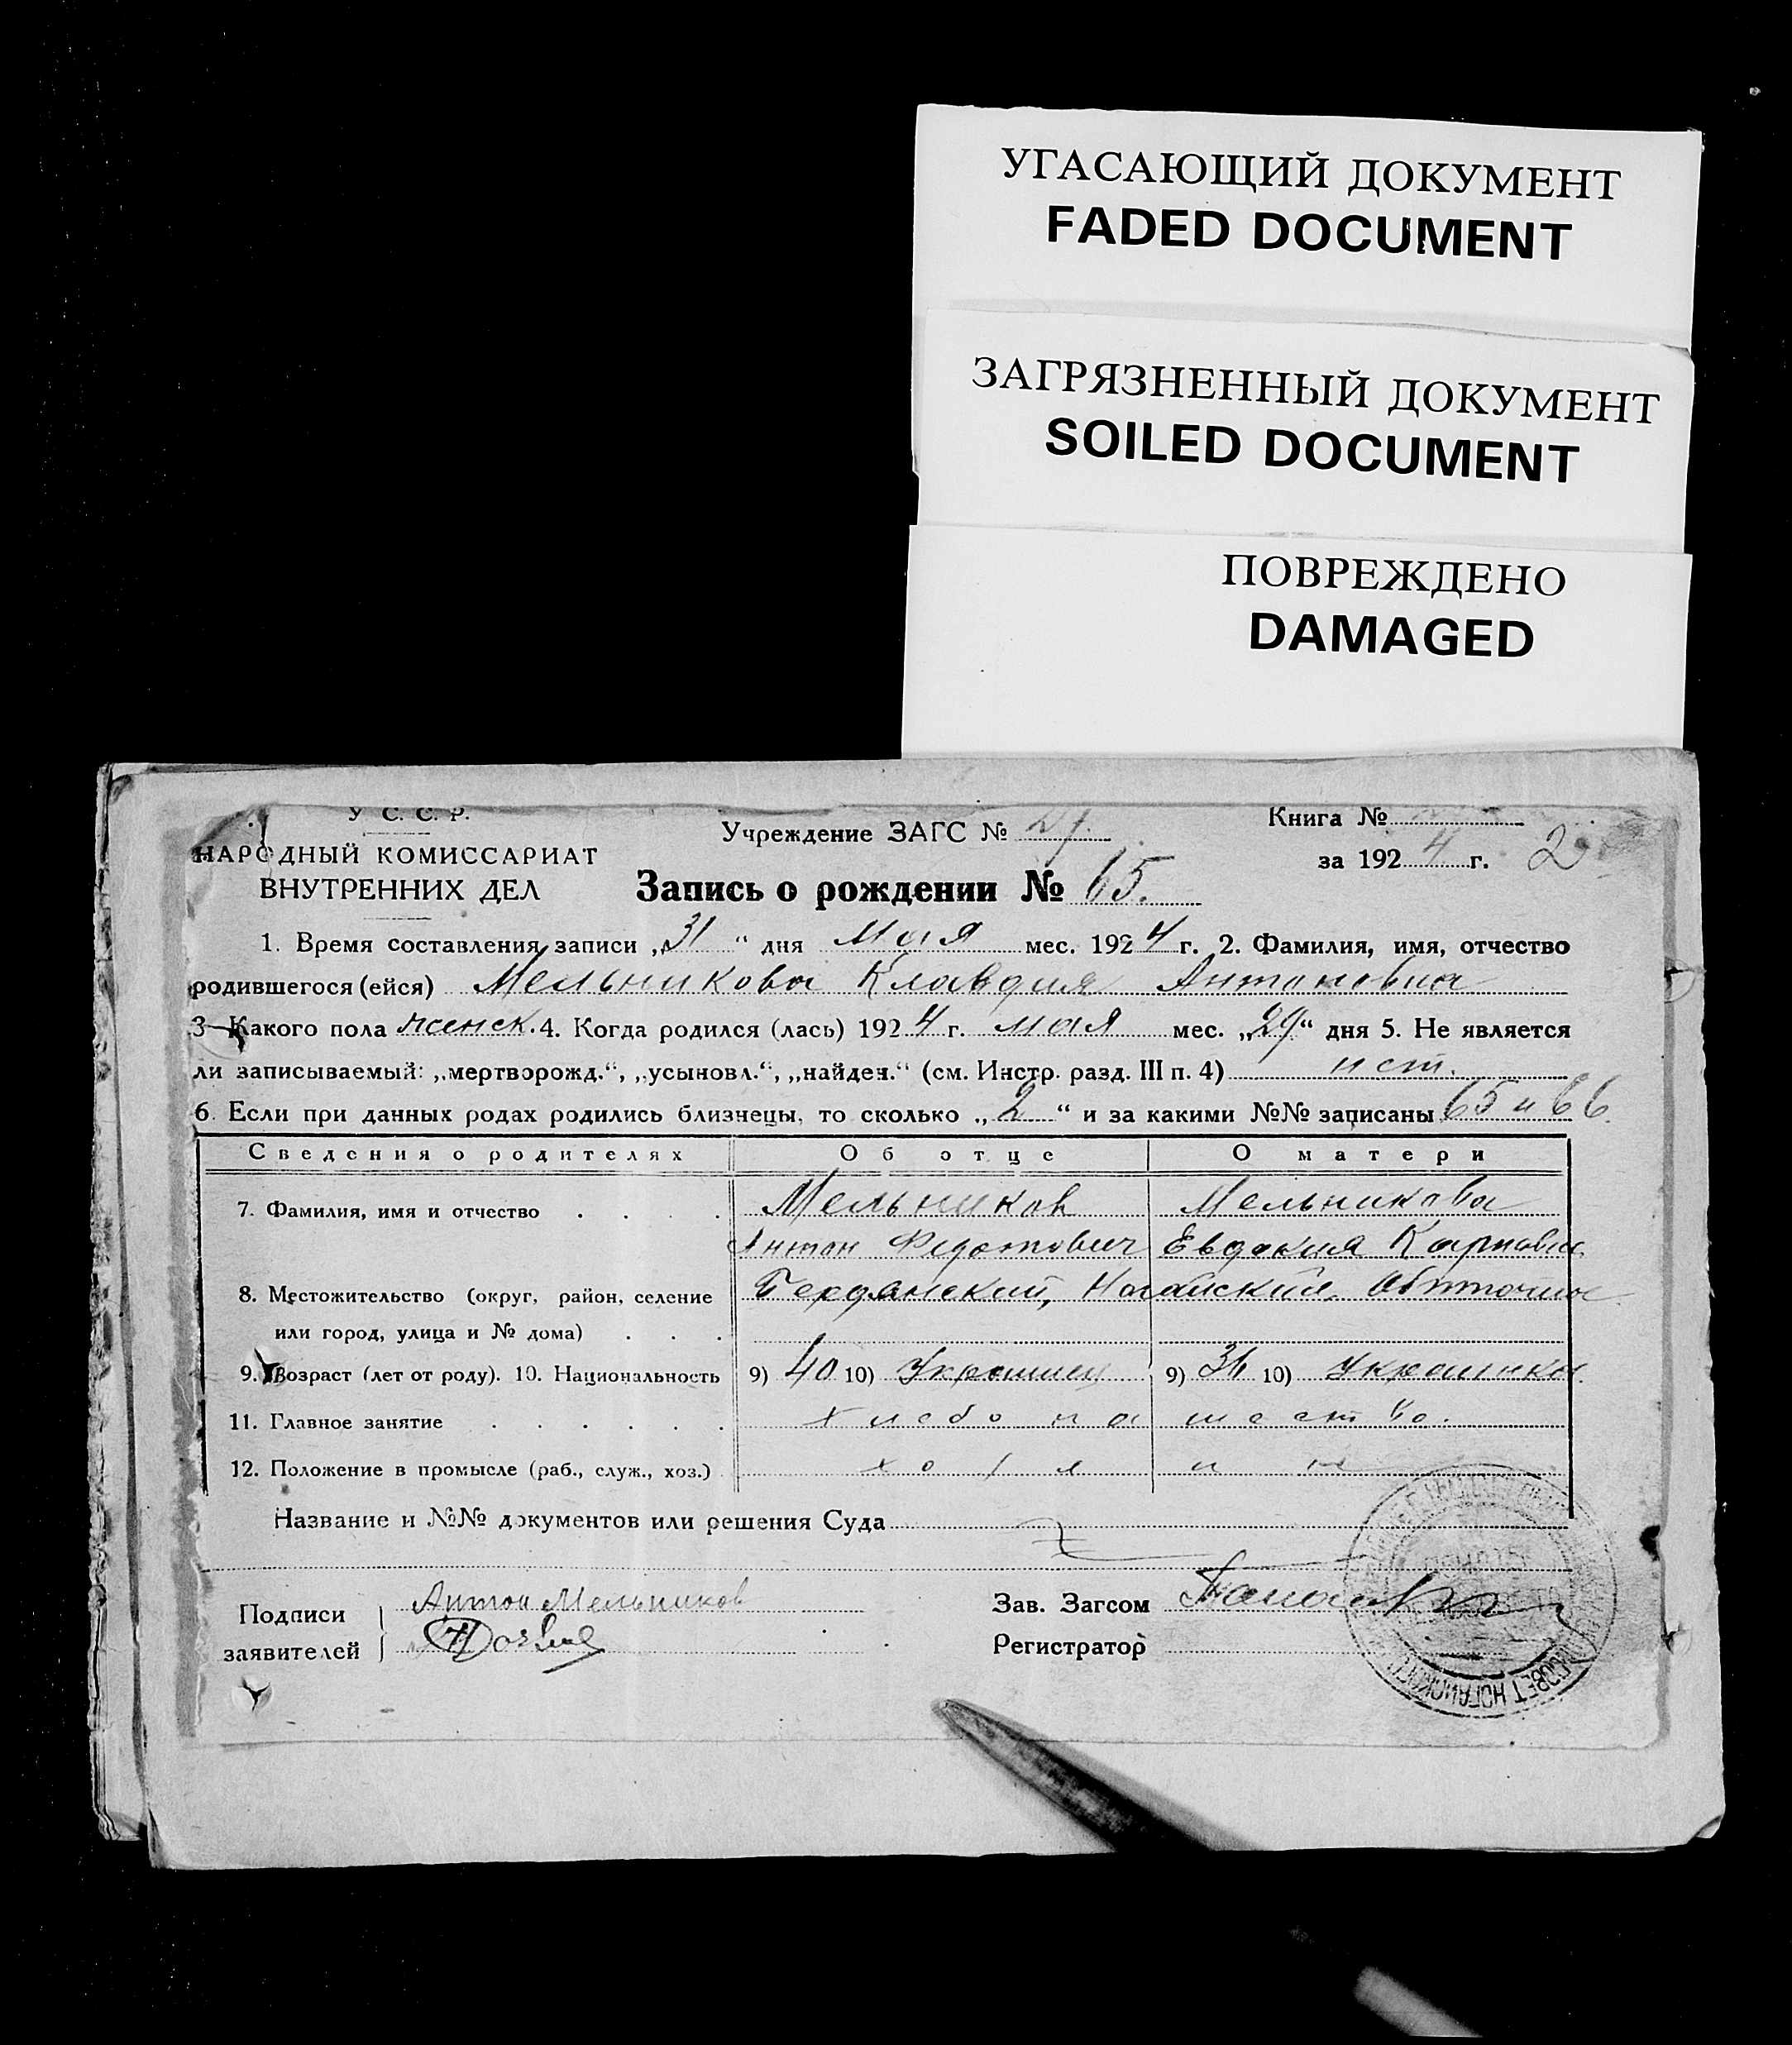 УГАСАЮЩИЙ ДОКУМЕНТ
FADED DOCUMENT
ЗАГРЯЗНЕННЫЙ ДОКУМЕНТ
SOILED DOCUMENT
ПОВРЕЖДЕНО
DAMAGED
У С. С. Р.
НАРОДНЫЙ КОМИССАРИАТ
ВНУТРЕННИХ ДЕЛ
Учреждение ЗАГС №
Книга №
за 1924 г. 2
Запись о рождении № 65.
1. Время составления записи „31“ дня Мая мес. 1924 г. 2. Фамилия, имя, отчество
родившегося (ейся) Мельникова Клавдия Антоновна
3 Какого пола женск. 4. Когда родился (лась) 1924 г. мая мес. „29“ дня 5. Не является
ли записываемый: „мертворожд.“, „усыновл.“, „найден.“ (см. Инстр. разд. III п. 4)
6. Если при данных родах родились близнецы, то сколько „2“ и за какими №№ записаны 65 и 66.
Сведения о родителях Об отце О матери
7. Фамилия, имя и отчество Мельников Мельникова
Антон Федотович Евдокия Карповна
8. Местожительство (округ, район, селение Бердянский, Ногайский, Обиточное
или город, улица и № дома)
9. Возраст (лет от роду). 10. Национальность 9) 40 10) Украинец 9) 36 10) Украинка
11. Главное занятие хлебопашество.
12. Положение в промысле (раб., служ., хоз.) хозяин
Название и №№ документов или решения Суда
Подписи заявителей Антон Мельников
Зав. Загсом
Регистратор